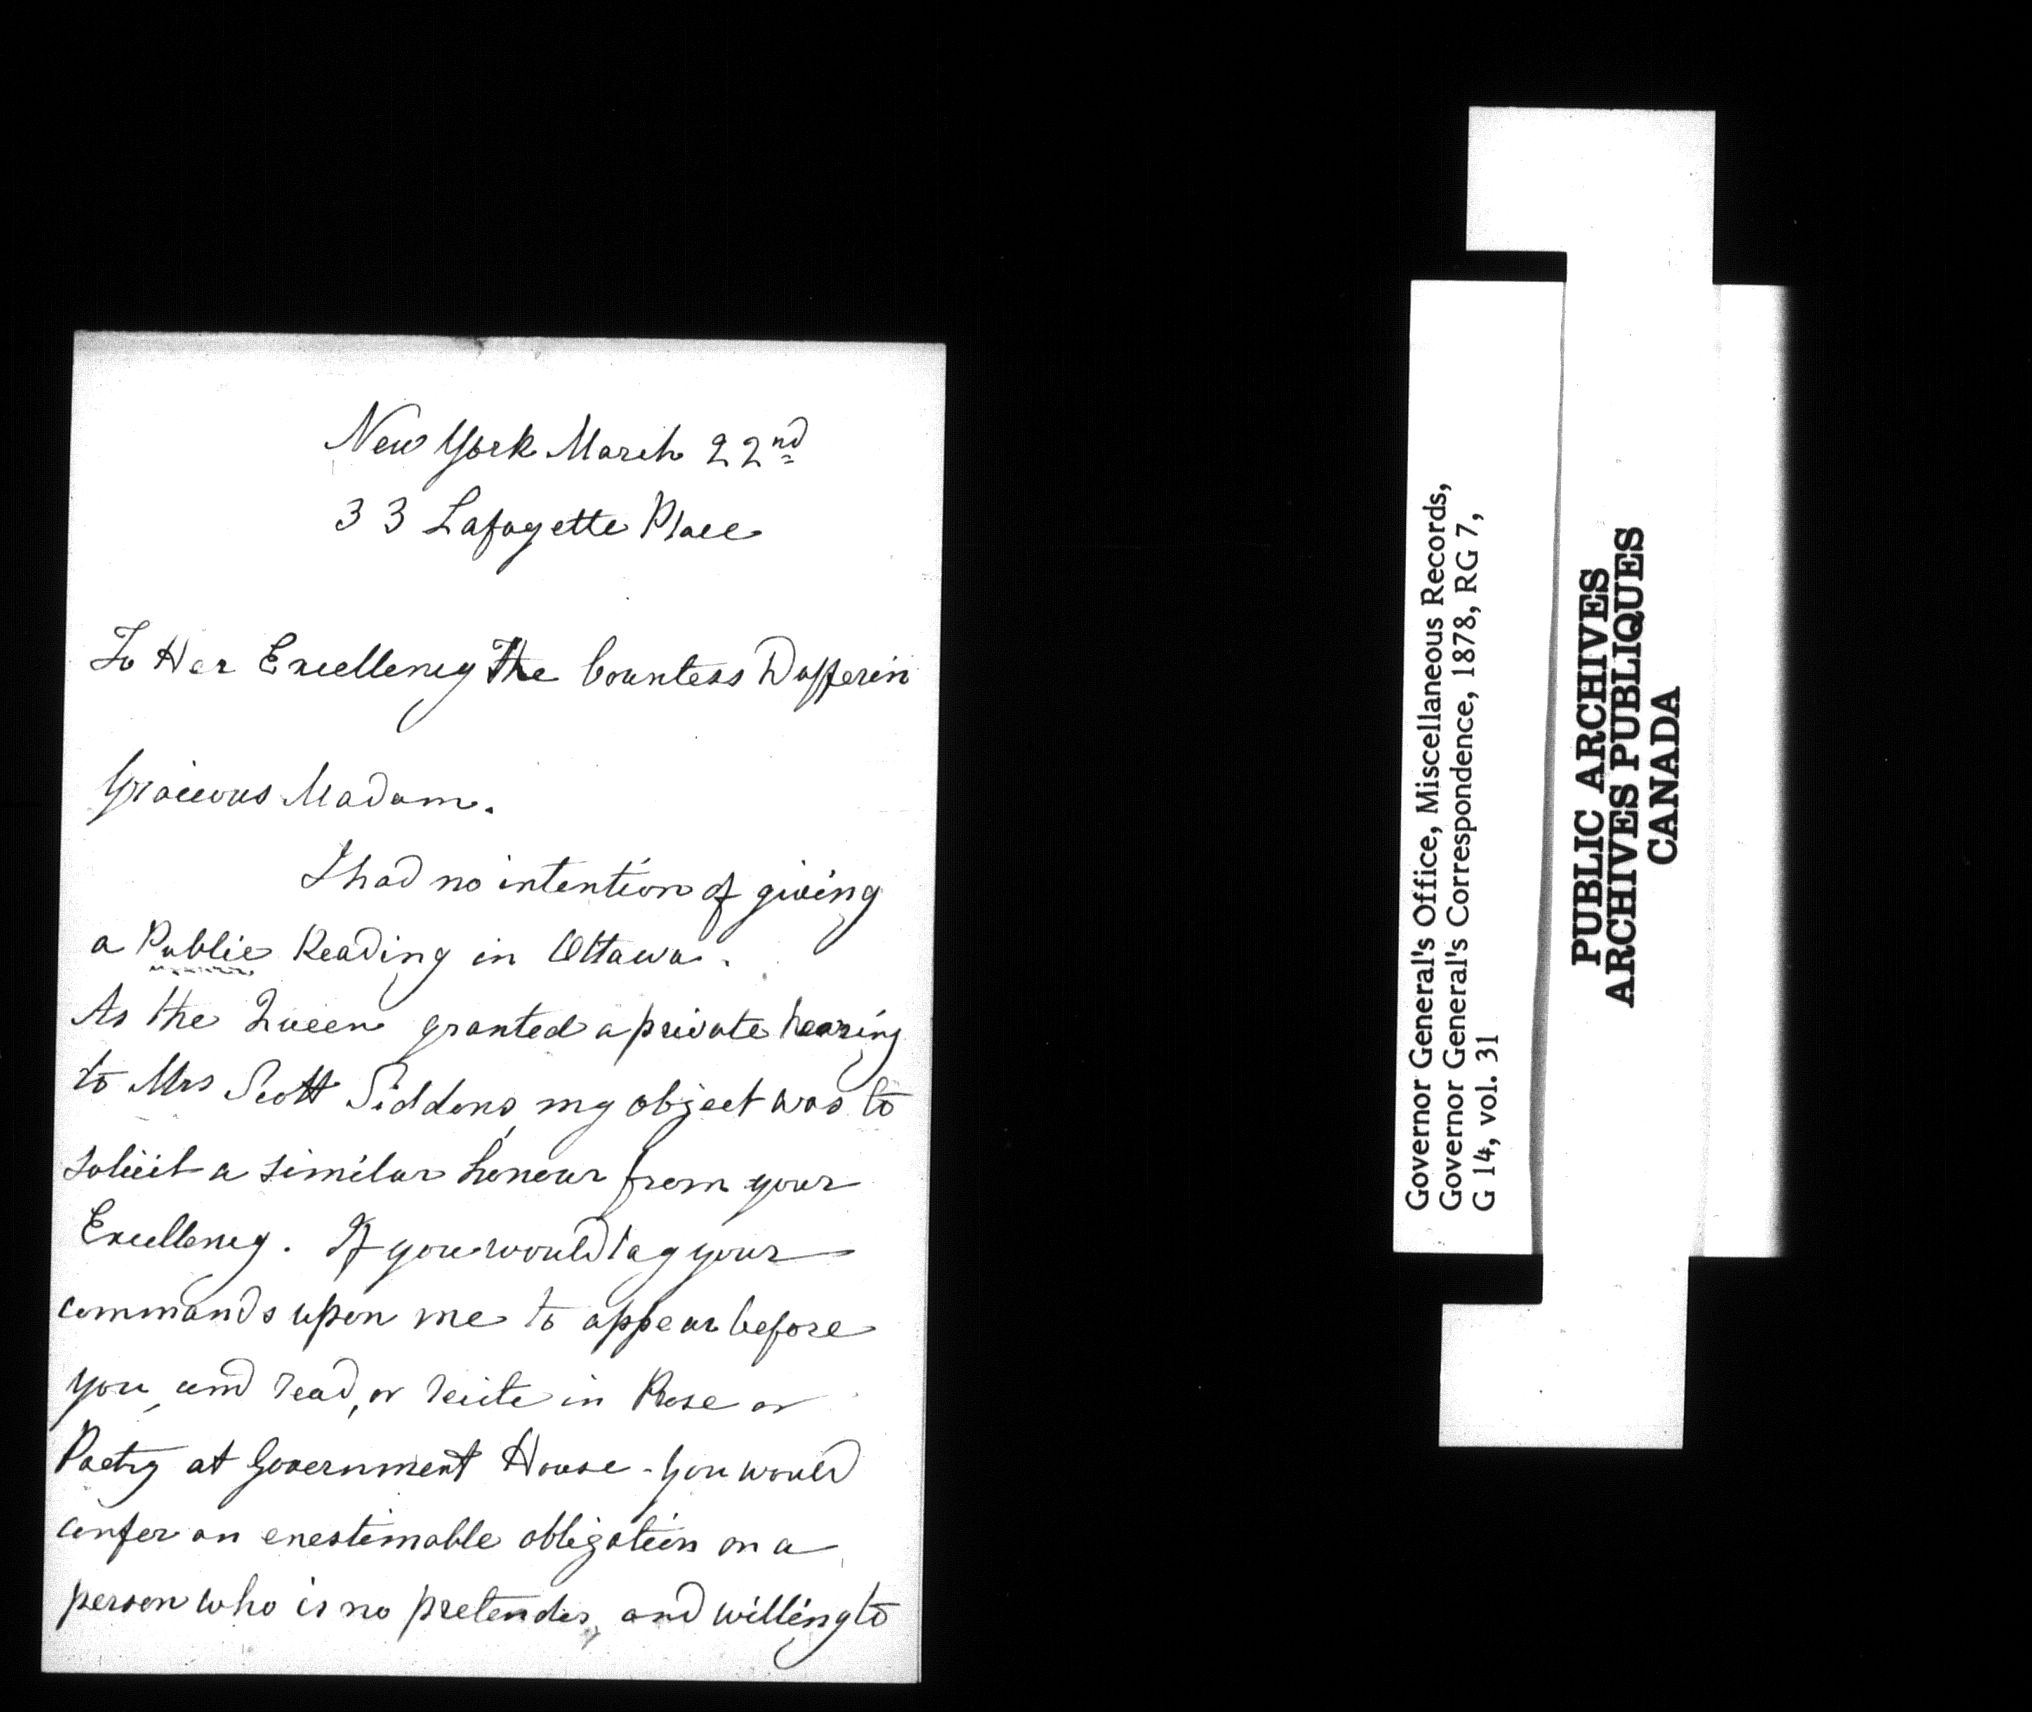 New York March 22nd
33 Lafayette Place
To Her Excellency The Countess Dufferin
Gracious Madam.
I had no intention of giving
a Public Reading in Ottawa.
As the Queen granted a private hearing
to Mrs Scott Siddons, my object was to
solicit a similar honour from your
Excellency. If you would lay your
commands upon me to appear before
you, and read, or recite in Prose or
Poetry at Government House - you would
confer an enestimable obligation on a
person who is no pretender, and willing to
Governor General's Office, Miscellaneous Records,
Governor General's Correspondence, 1878, RG 7,
G 14, vol. 31
PUBLIC ARCHIVES
ARCHIVES PUBLIQUES
CANADA